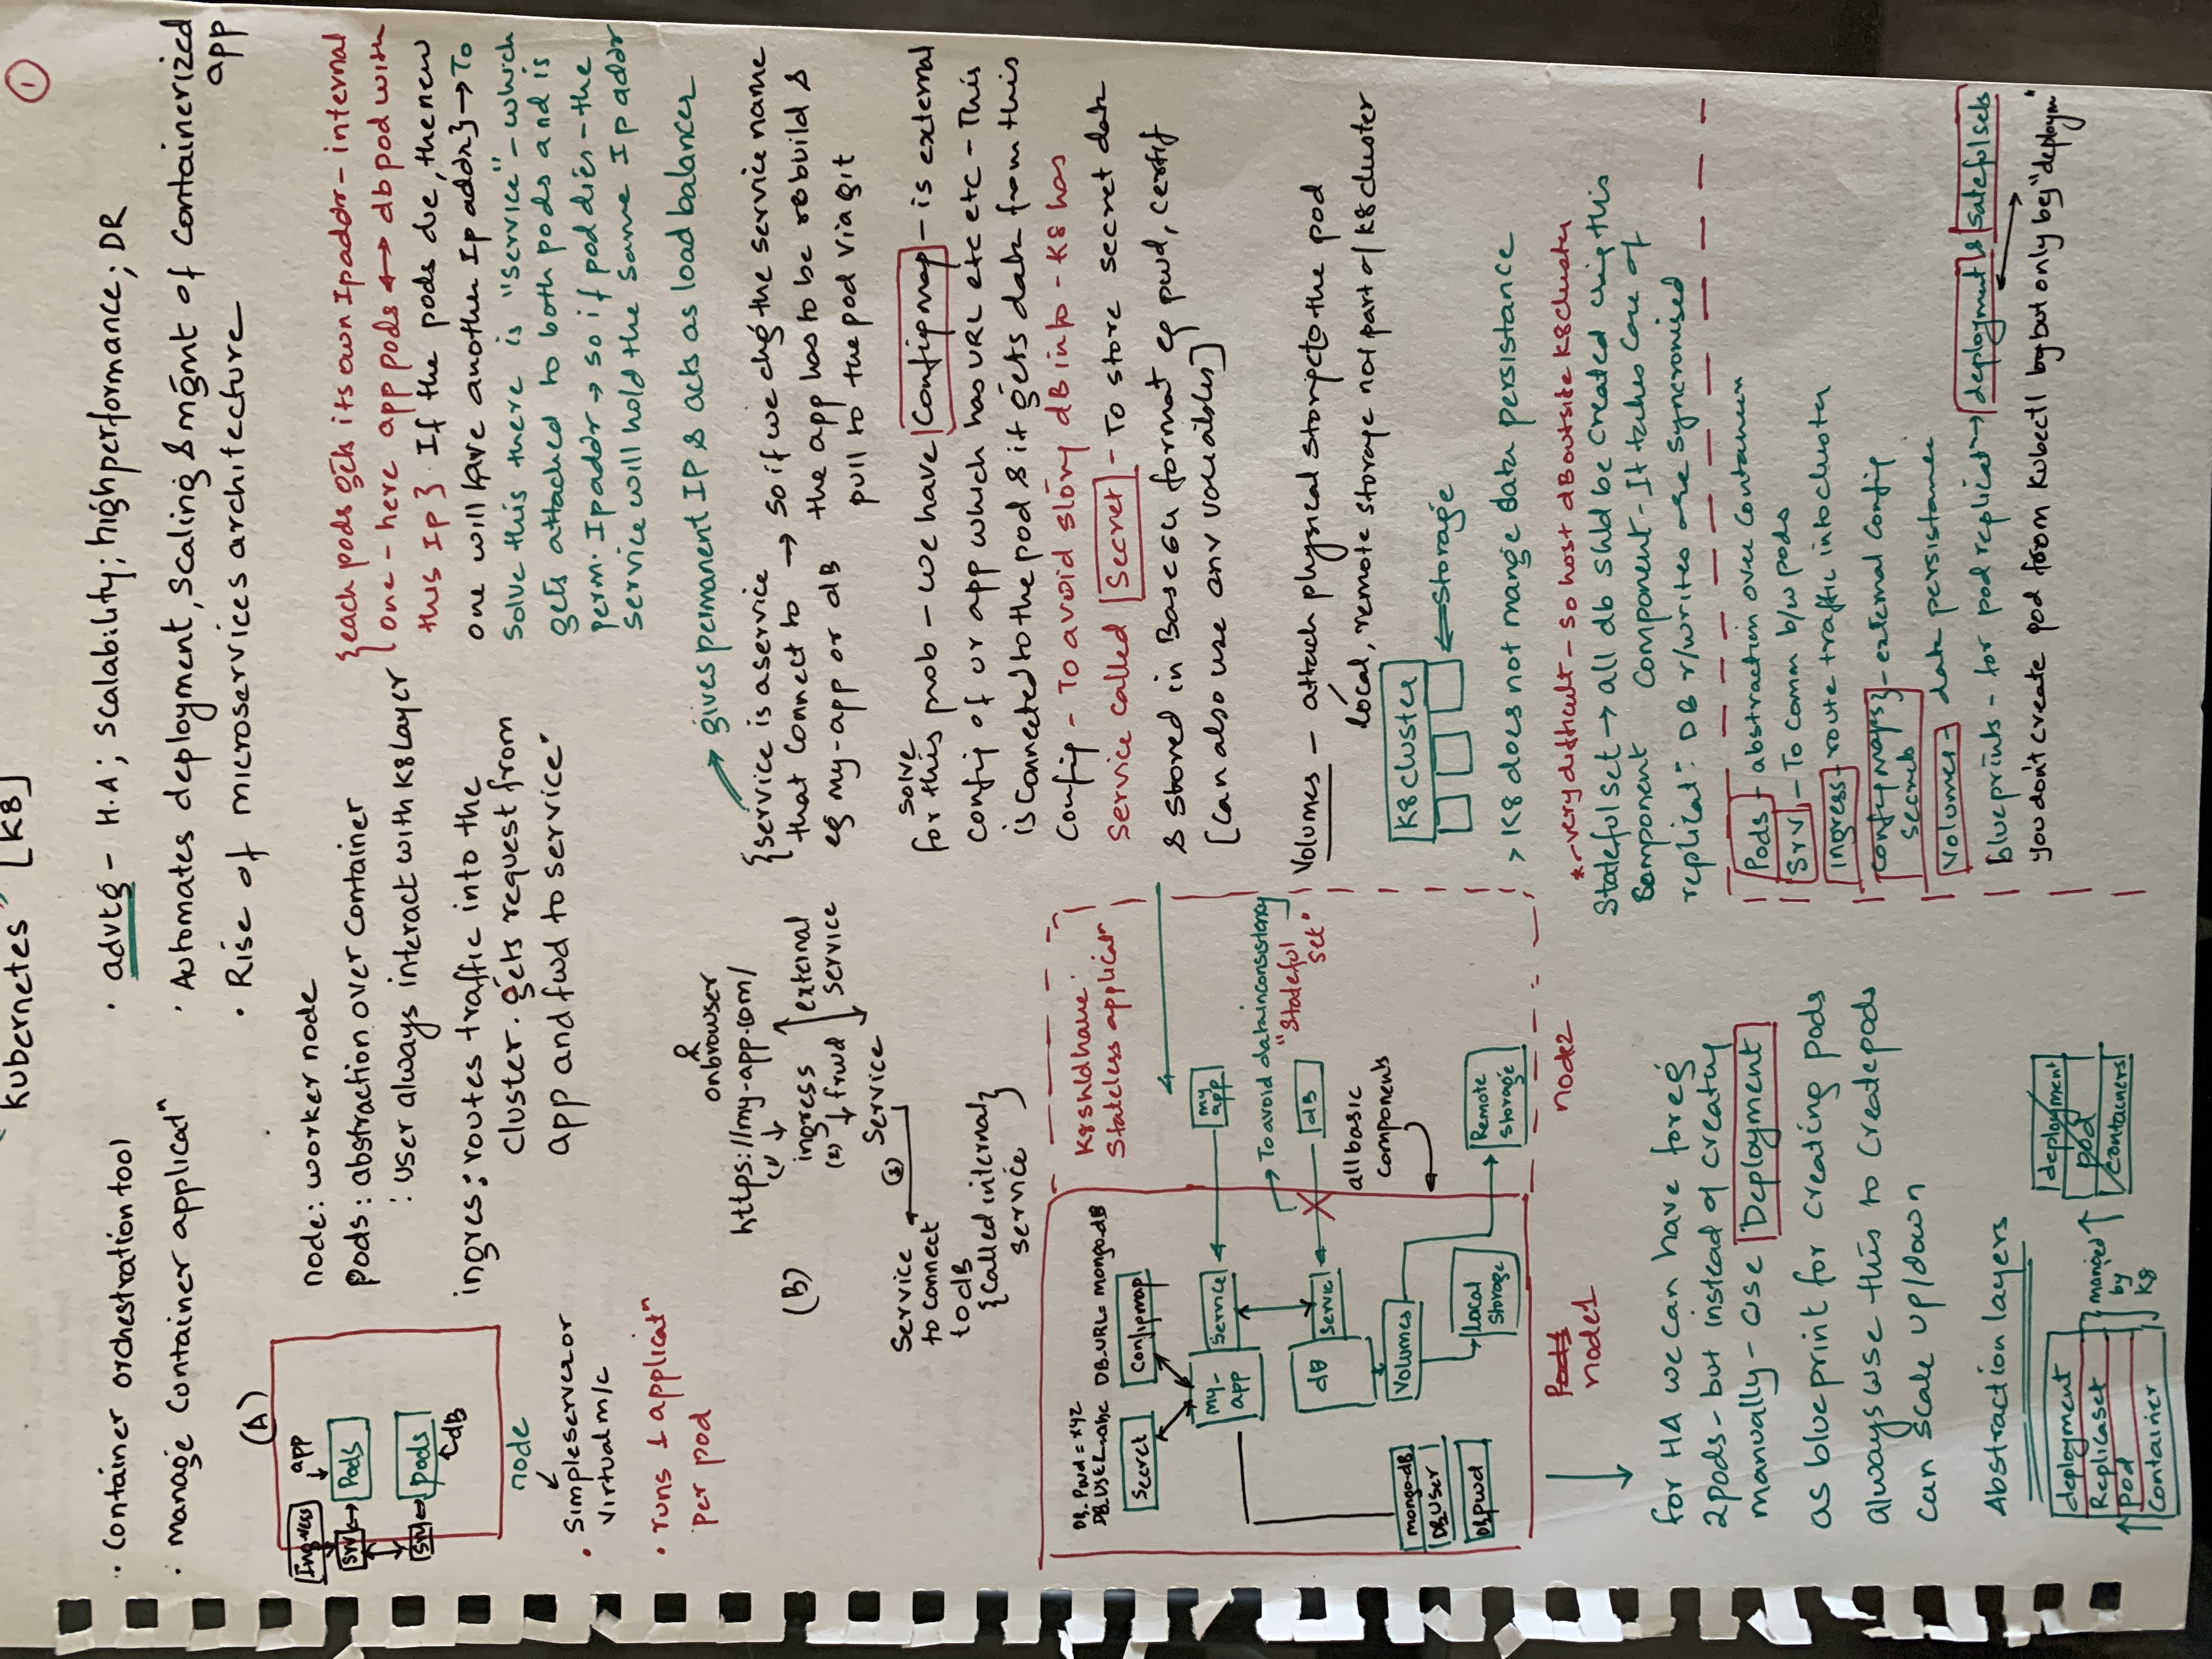 "Kubernetes" [K8]
1
· Container orchestration tool
· manage Container applicatⁿ
· advtg - H.A; Scalability; high performance; DR
· Automates deployment, Scaling & mgmt of Containerized
app
· Rise of microservices architecture
(A)
Ingress
app
Srv
Pods
Srv
pods
dB
node
· Simple server or
virtual m/c
· runs 1 applicatⁿ
per pod
node: worker node
pods: abstraction over Container
: user always interact with K8 Layer
ingres: routes traffic into the
cluster. gets request from
app and fwd to service·
{each pods gets its own Ip addr - internal
one - here app pods ↔ db pod with
this Ip} If the pods die, the new
one will have another Ip addr} → To
Solve this there is "Service" - which
gets attached to both pods and is
perm. Ip addr → so if pod dies - the
service will hold the same Ip addr
(B)
on browser
https://my-app.com/
(1) ↓
ingress
(2) ↓ frwd
external
service
Service
(3)
Service
to connect
to dB
{called internal}
service
→ gives permanent IP & acts as load balancer
{service is a service
that connect to
eg my-app or dB
→ so if we chg the service name
the app has to be rebuild &
pull to the pod via git
solve
for this prob - we have Configmap - is external
config of ur app which has URL etc etc - This
is connected to the pod & it gets data from this
Config - To avoid storg dB info - K8 has
Service called Secret - To store secret data
& stored in Base64 format eg pwd, certif
[can also use env variables]
DB_Pwd = xyz
DB_USER=abc DB_URL= mongo-db
Secret
Configmap
my-
app
Service
dB
Service
Volumes
mongo-dB
DB_User
DB_pwd
Local
Storage
Remote
Storage
K8 shld have
Stateless applicatⁿ
my
app
→ To avoid data inconsistency
"Stateful
set"
dB
all basic
components
Pods
node1
node2
Volumes - attach physical storage to the pod
local, remote storage not part of K8 cluster
K8 cluster
⇐ Storage
> K8 does not mange data persistance
* - very difficult - so host dB outsite K8 cluster
Stateful set → all db shld be created using this
Component Component - It takes care of
replicatⁿ DB r/writes are syncronised
for HA we can have for eg
2 pods - but instead of creatng
manually - use Deployment
as blueprint for creating pods
always use this to create pods
can scale up/down
Abstraction layers
deployment
Replicaset
Pod
Container
manged
by
K8
deployment
pod
containers
Pods - abstraction over Container
Srv - To comm b/w pods
Ingress - route traffic into cluster
Configmaps}
Secrets
- external config
Volumes - data persistance
blueprints - for pod replicatⁿ → deployment & Satefulsets
you don't create pod from kubectl but only by "deploym"